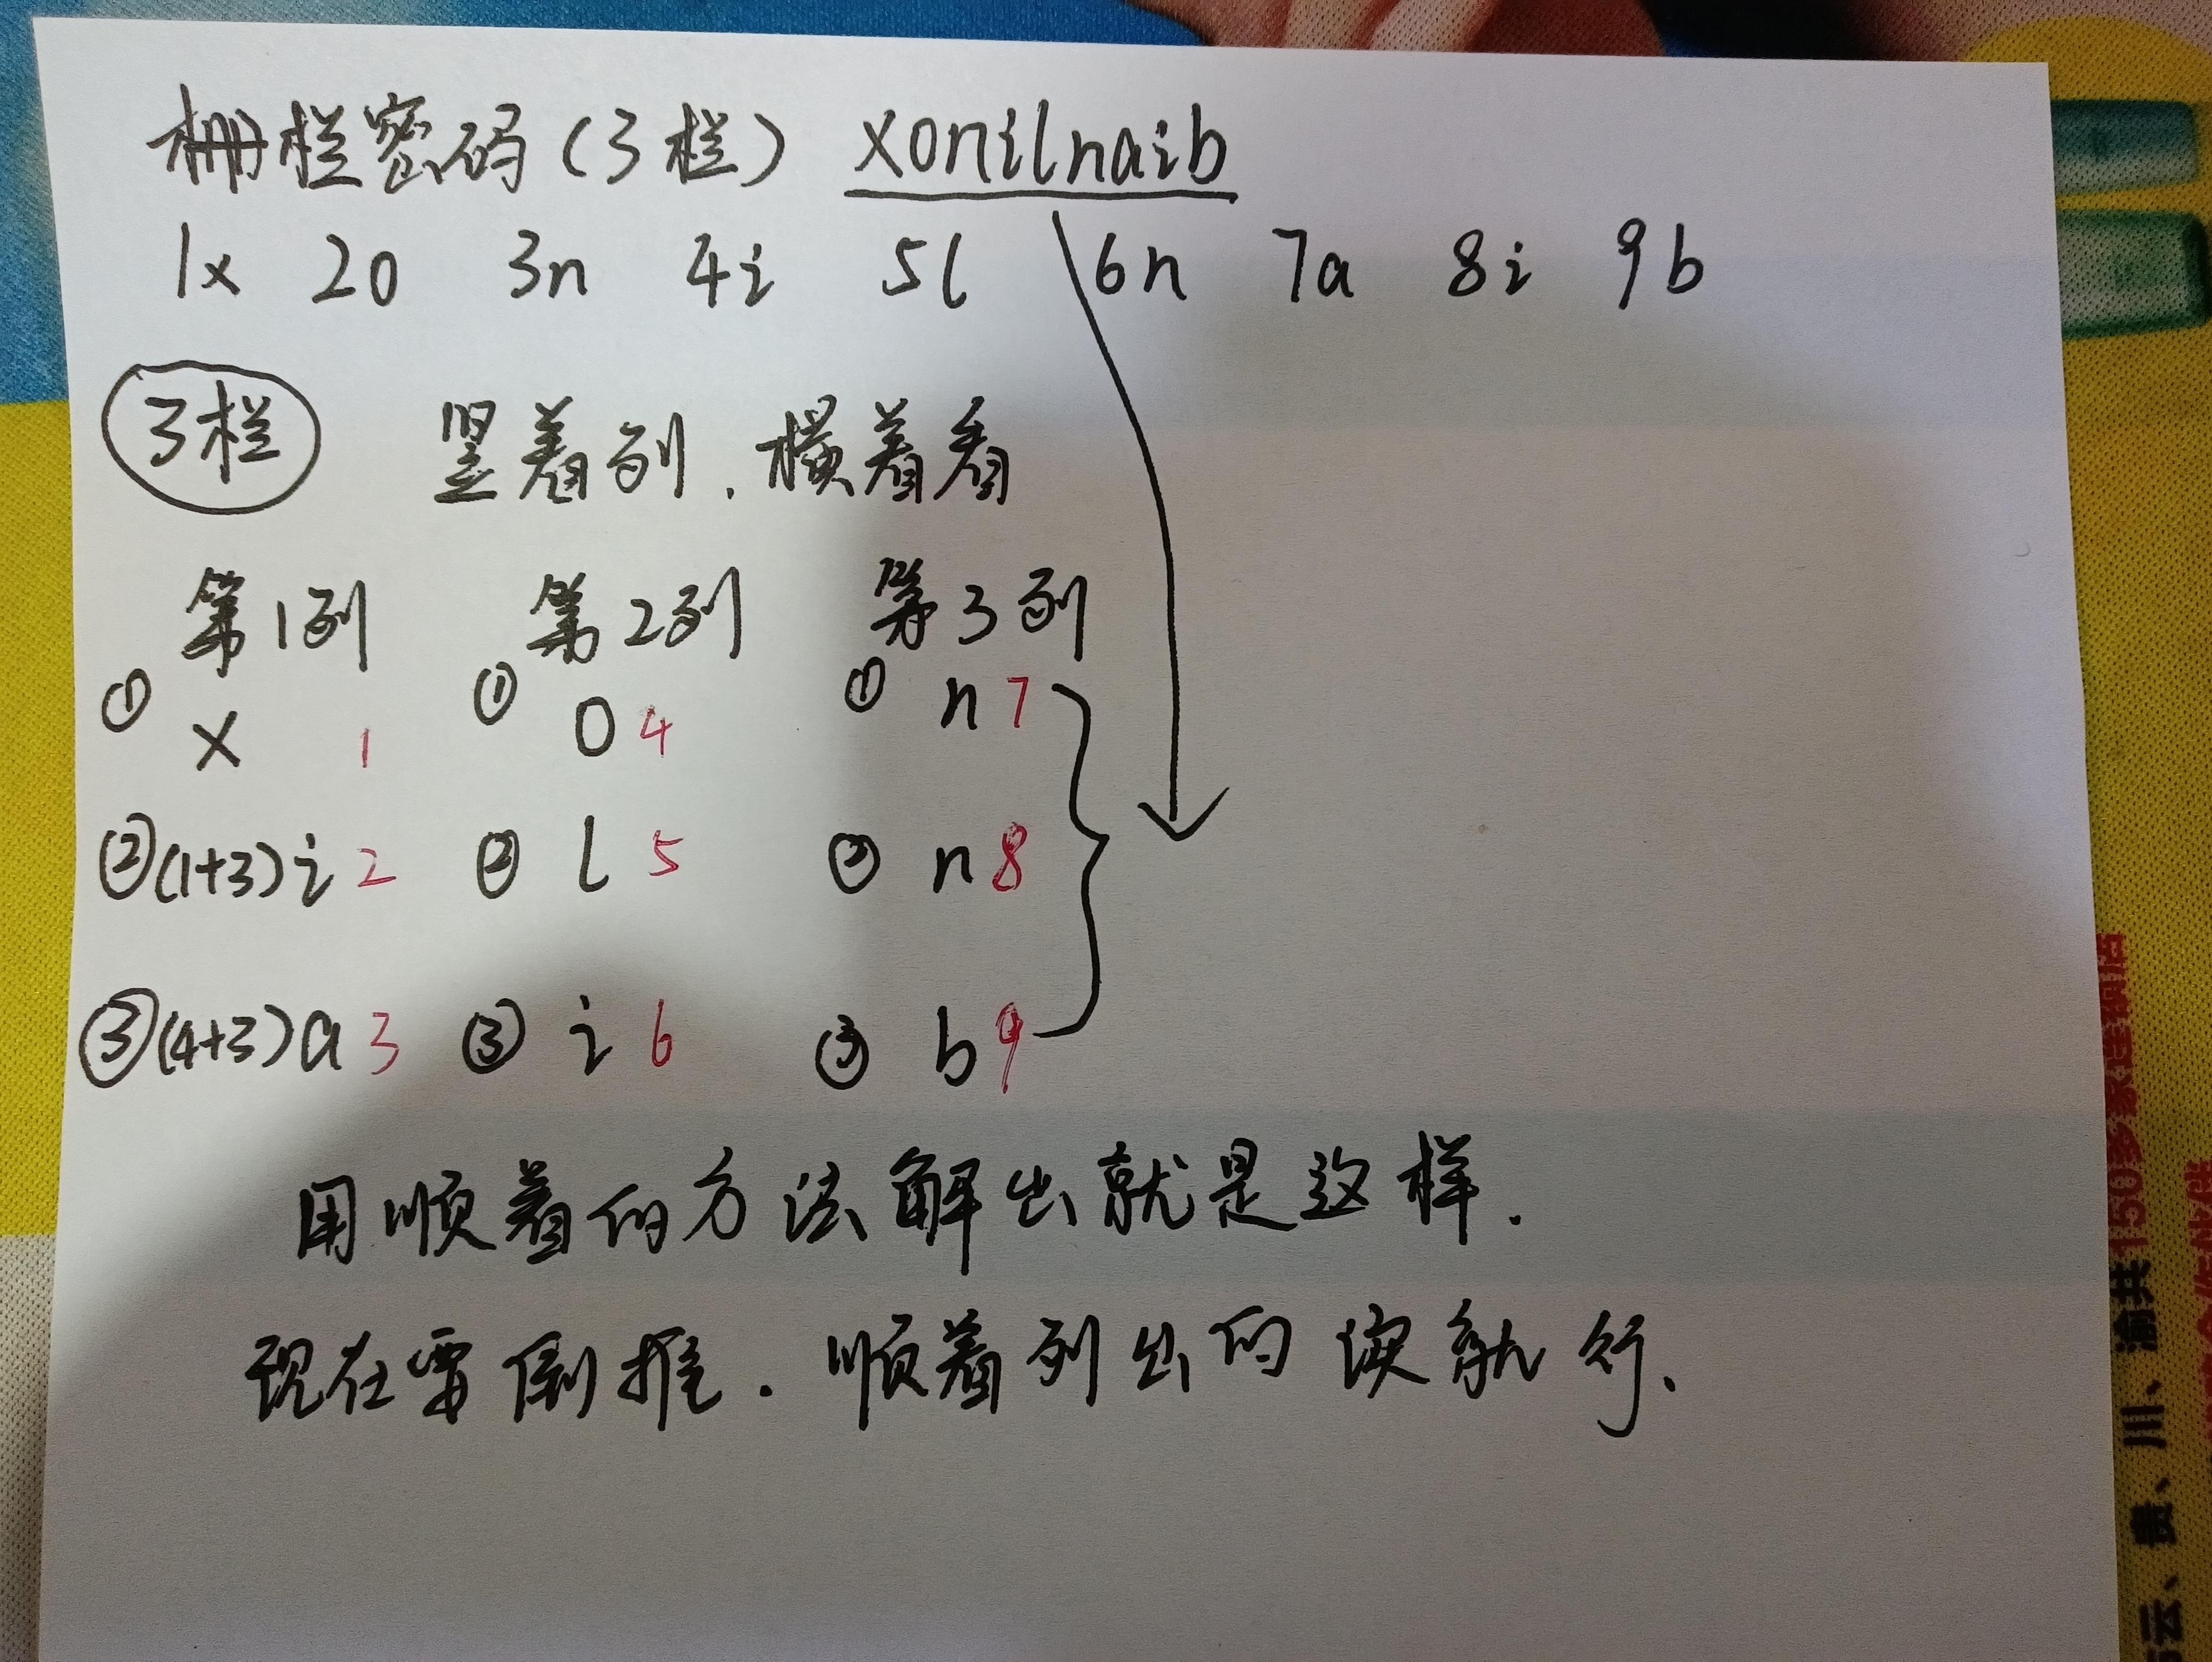 栅栏密码(3栏) xonilnaib
1x 2o 3n 4i 5l 6n 7a 8i 9b
3栏 竖着列.横着看
第1列 第2列 第3列
① x 1 ① o 4 ① n 7
②(1+3) i 2 ② l 5 ② n 8
③(4+3) a 3 ③ i 6 ③ b 9
用顺着的方法解出就是这样.
现在要倒推.顺着列出的读就行、
150多家连锁店
渝共
云、贵、川、